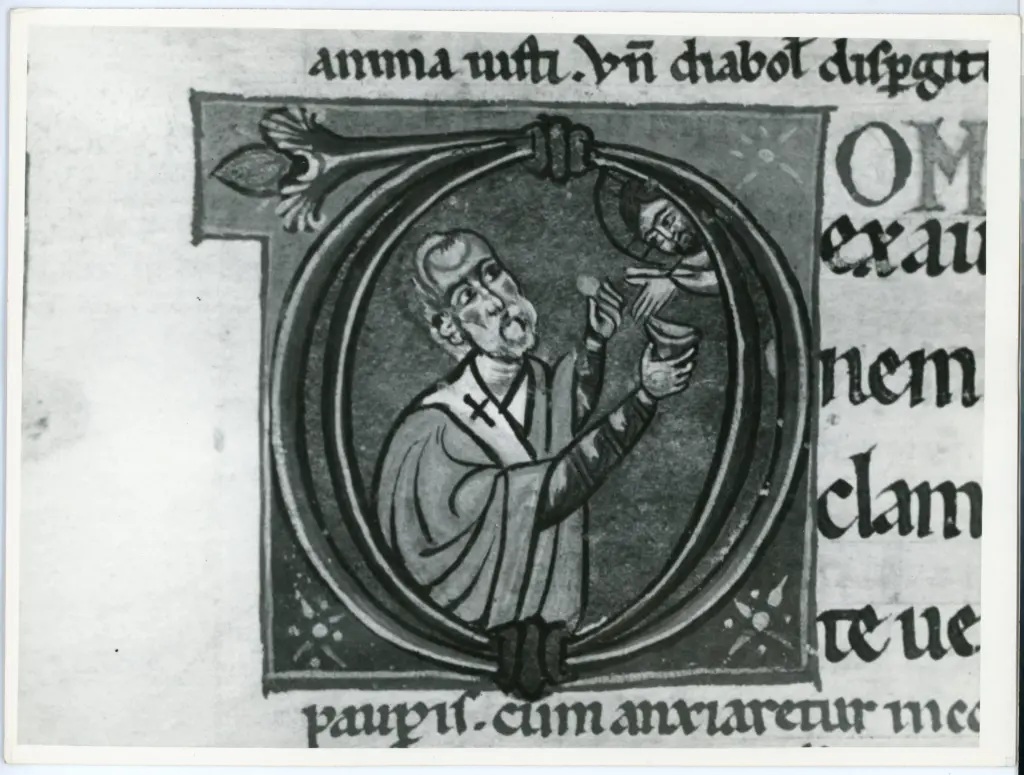 anima iusti . Vn̄ diabol̄ disp̱git
DOM
exau
nem
clam
te ue
paup̱is . cum anxiaretur in co